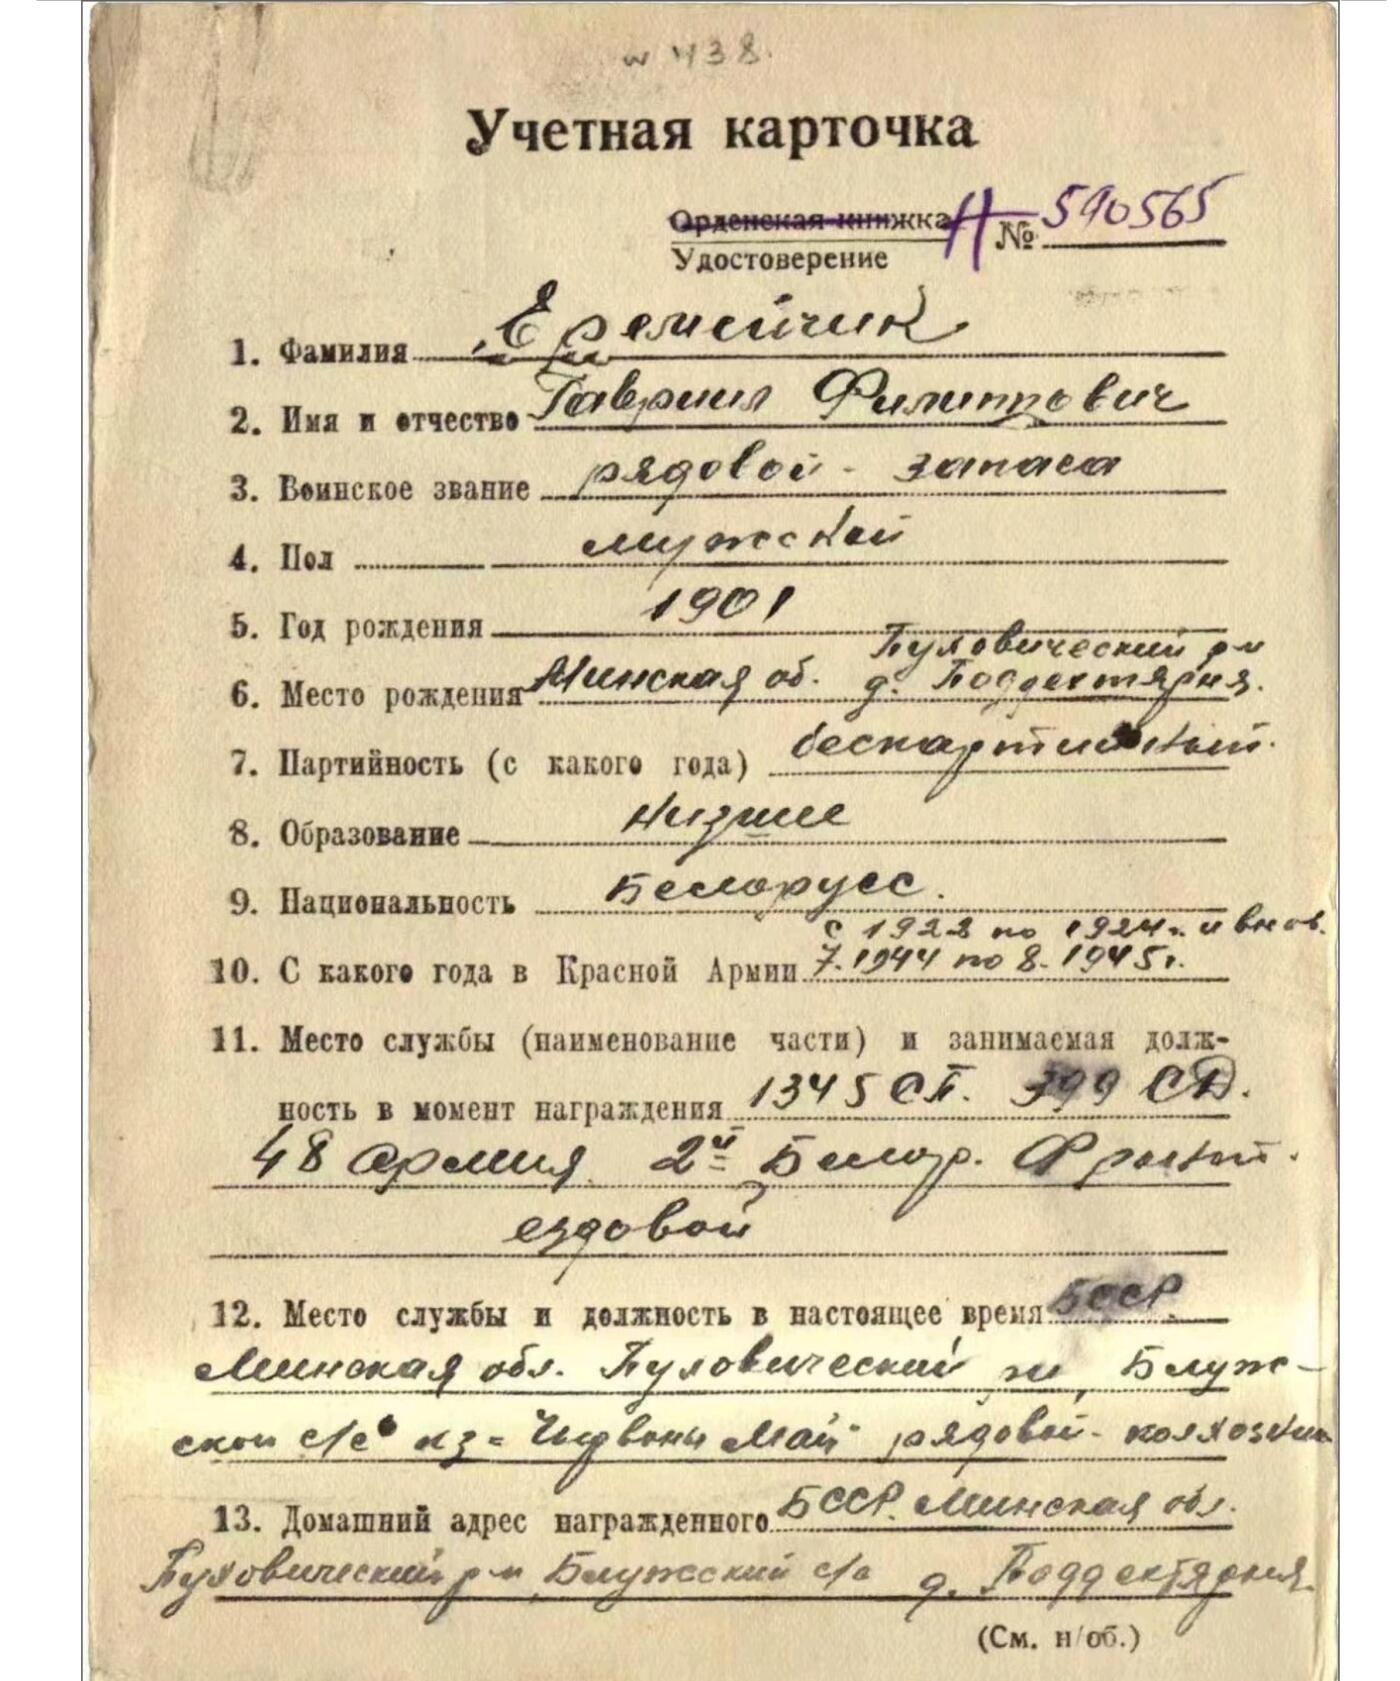 № 438.
Учетная карточка
Орденская книжка
Удостоверение
Н № 590565
1. Фамилия Еремейчик
2. Имя и отчество Гавриил Филиппович
3. Воинское звание рядовой - запаса
4. Пол мужской
5. Год рождения 1901
Пуховический р-н
6. Место рождения Минская об. д. Поддегтярня.
7. Партийность (с какого года) беспартийный.
8. Образование низшее
9. Национальность Белорусс.
с 1922 по 1924г. и внов.
10. С какого года в Красной Армии 7.1944 по 8.1945г.
11. Место службы (наименование части) и занимаемая долж-
ность в момент награждения 1345 СП. 399 СД.
48 армия 2й Белор. Фронт.
ездовой
12. Место службы и должность в настоящее время БССР.
Минская обл. Пуховический р-н, Блуж-
ской с/с к-з = Червоны Май рядовой - колхозник
13. Домашний адрес награжденного БССР. Минская обл.
Пуховический р-н Блужский с/с д. Поддегтярня.
(См. н/об.)